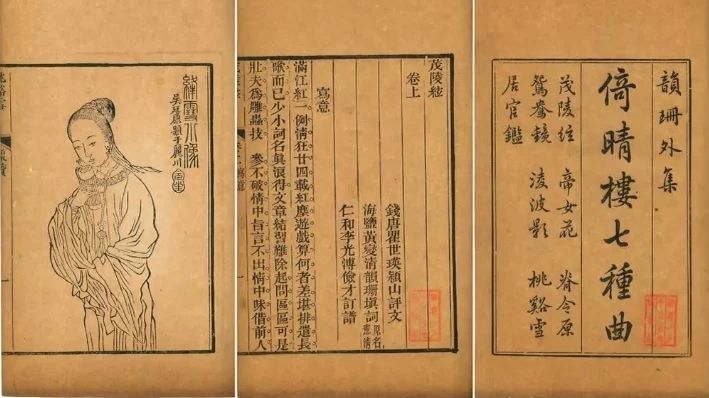 韻珊外集
倚晴樓七種曲
茂陵絃 帝女花 脊令原
鴛鴦鏡 凌波影 桃谿雪
居官鑑
茂陵絃
卷上
錢唐瞿世瑛穎山評文
海鹽黃燮清韻珊填詞 原名憲清
仁和李光溥儉才訂譜
寫意
滿江紅一例清狂廿四載紅塵遊戲算何者差堪排遣長
歌而已少小詞名眞浪得文章結習難除起問區區可是
壯夫爲雕蟲技 參不破情中旨言不出情中味借前人
絳雪小像